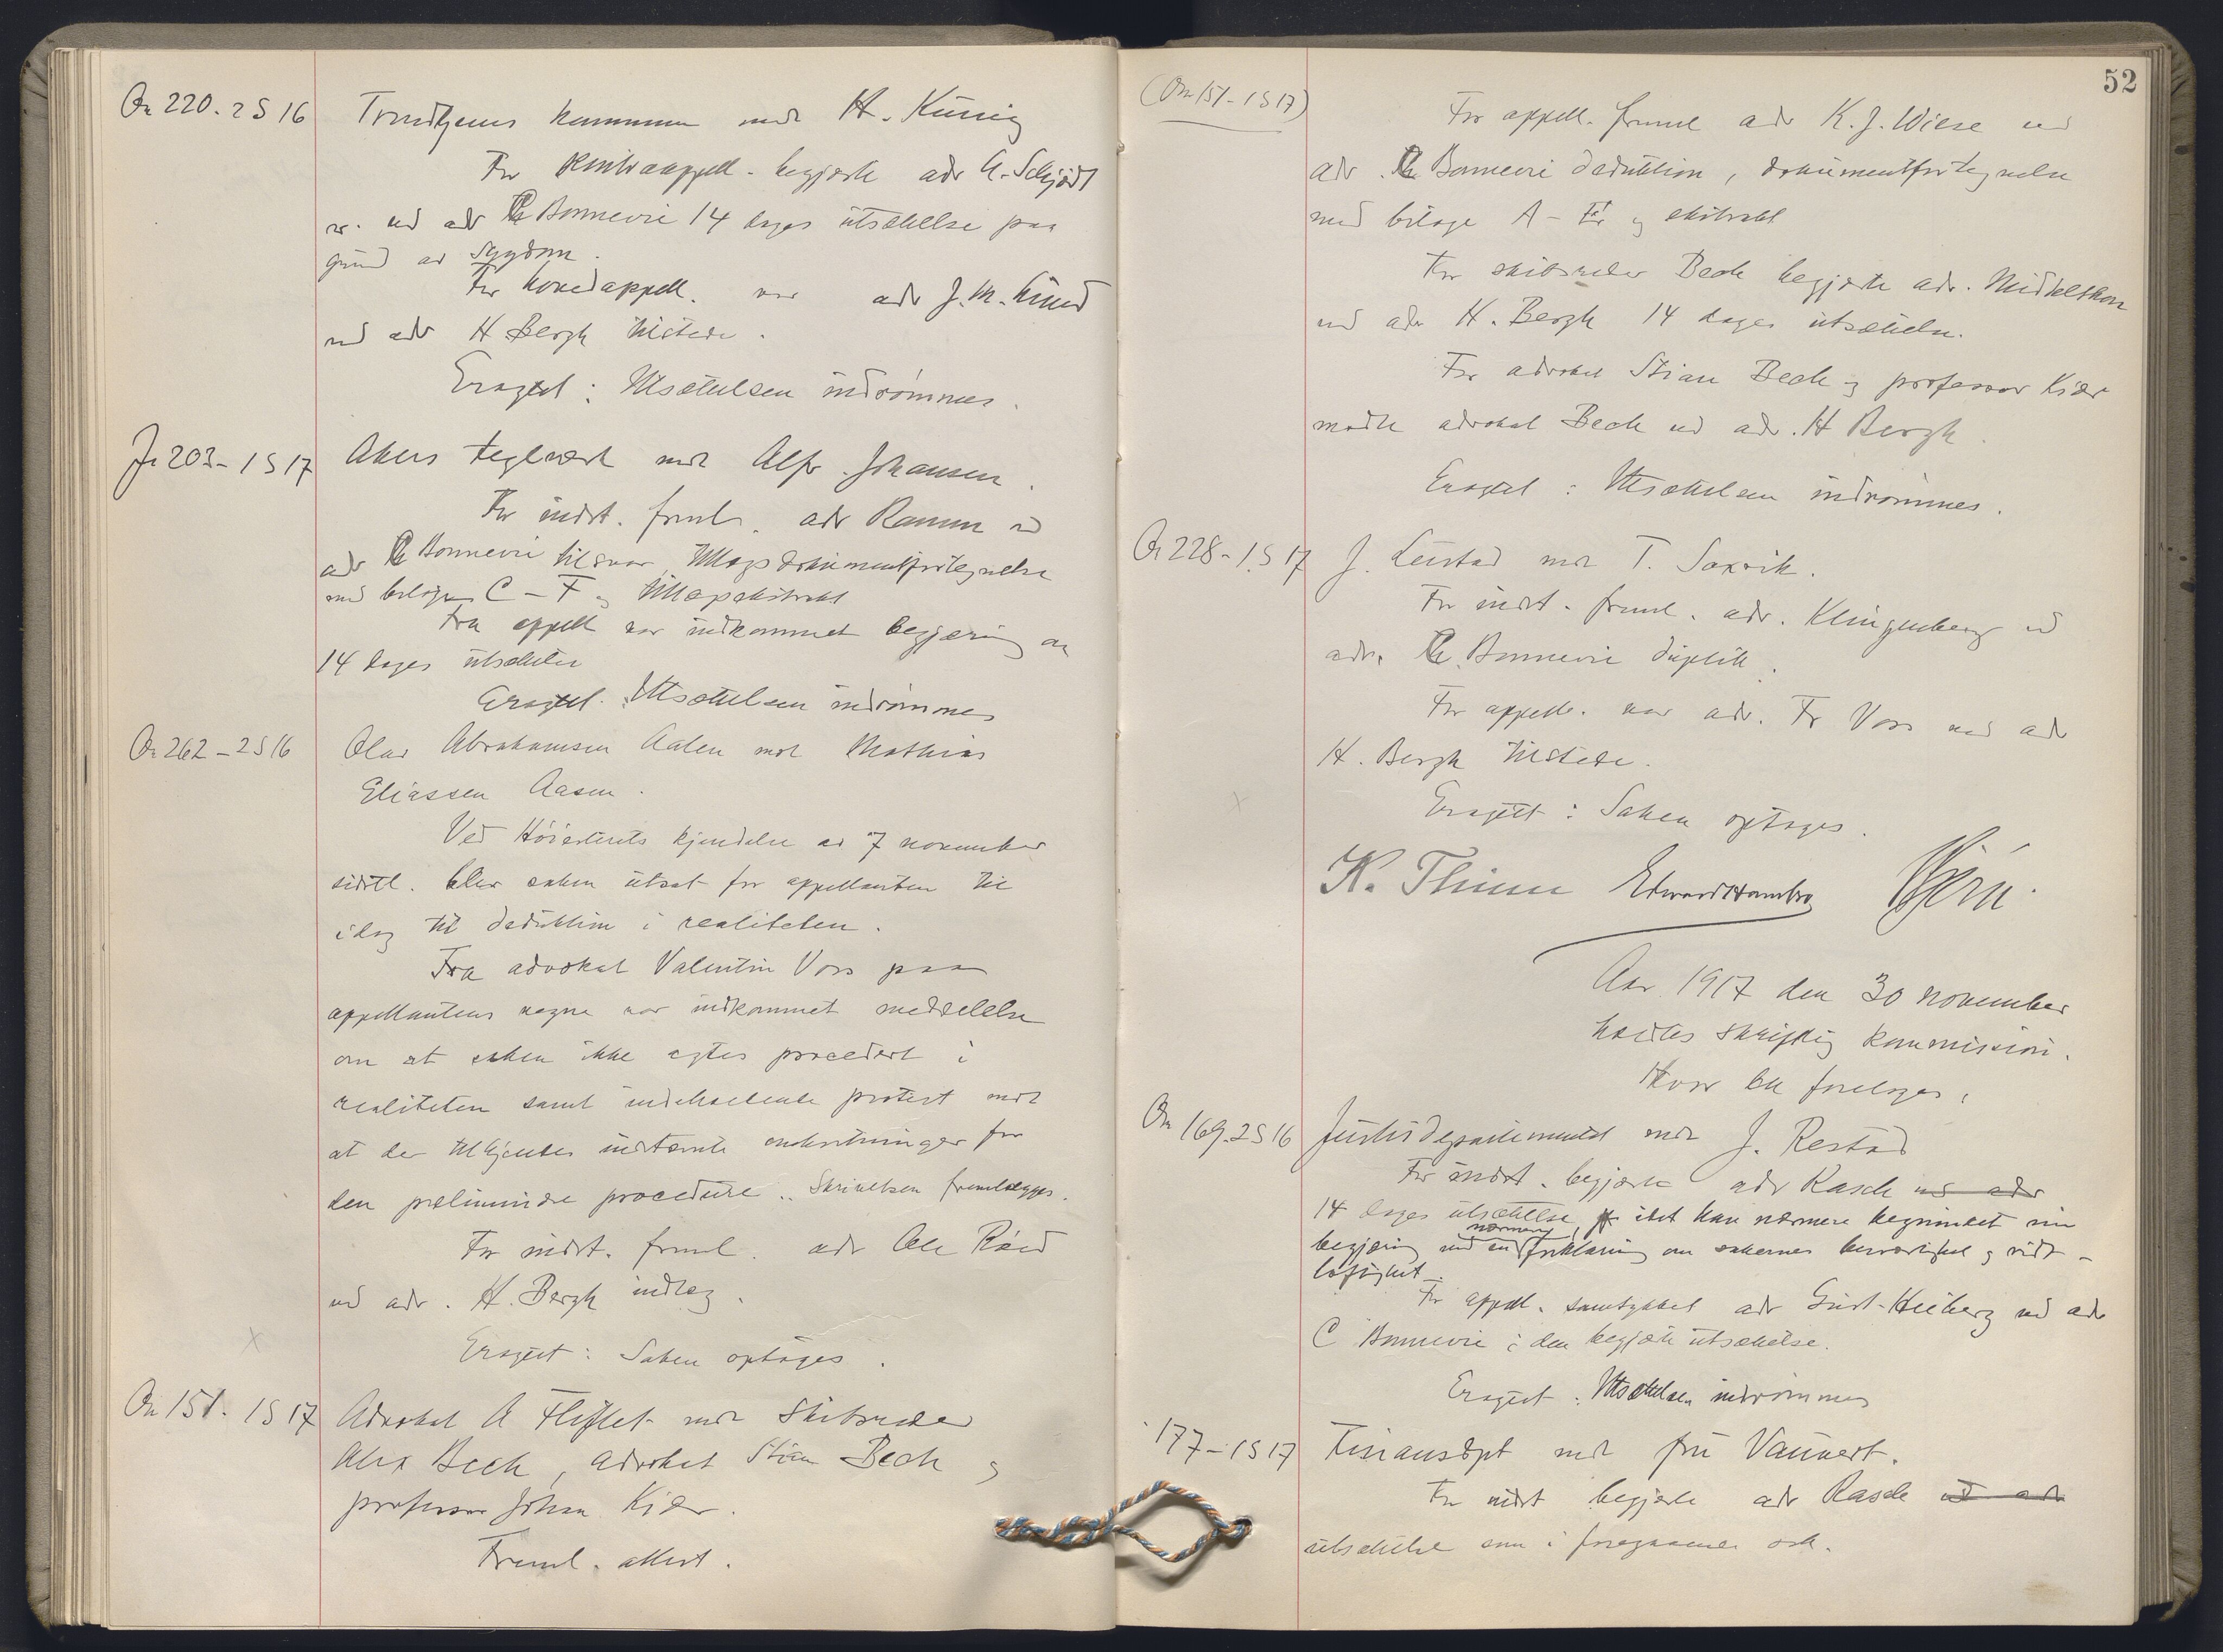 On 220. 2 S 16
Trondhjems kommune mot H. König
For kontraappell. begjærte adv A. Schjödt
ved adv Chr Bonnevie 14 dages utsættelse paa
grund av sygdom.
For hovedappell. var adv J. M. Lund
ved adv H Bergh tilstede.
Eragtet: Utsættelsen indrömmes.
Jr 203 - 1 S 17
Akers teglverk mot Alfr. Johansen.
For indst. freml. adv Ramm ved
adv Chr Bonnevie tilsvar, tillægsdokumentfortegnelse
med bilage C - F og tillægsekstrakt
Fra appell var indkommet begjæring om
14 dages utsættelse
Eragtet: Utsættelsen indrömmes
On 262 - 2 S 16
Olav Abrahamsen Aalen mot Mathias
Eliassen Aasen.
Ved Höiesterets kjendelse av 7 november
sidstl. blev saken utsat for appellanten til
idag til deduktion i realiteten.
Fra advokat Valentin Voss paa
appellantens vegne var indkommet meddelelse
om at saken ikke agtes procedert i
realiteten samt indeholdende protest mot
at der tilkjendes indstevnte omkostninger for
den preliminære procedure. Skrivelsen fremlægges.
For indst. freml. adv Ole Röed
ved adv. H. Bergh indlæg.
Eragtet: Saken optages.
On 151. 1 S 17
Advokat A Fliflet mot skibsreder
Alex Bech, advokat Stian Bech og
professor Johan Kiær.
Freml. attest.
52
(On 151 - 1 S 17)
For appell. freml adv K. J. Wiese ved
adv. Chr Bonnevie deduktion, dokumentfortegnelse
med bilage A - og ekstrakt
For skibsreder Bech begjærte adv. Middelthon
ved adv H. Bergh 14 dages utsættelse.
For advokat Stian Bech og professor Kiær
mødte advokat Bech ved adv. H Bergh.
Eragtet: Utsættelsen indrömmes.
On 228 - 1 S 17
J. Leistad mot T. Saxvik.
For indst. freml. adv. Klingenberg ved
adv. Chr. Bonnevie duplik.
For appell. var adv. Fr Voss ved adv
H. Bergh tilstede.
Eragtet: Saken optages.
K. Thinn Edvard Hambro
Aar 1917 den 30 november
holdtes skriftlig kommission.
Hvor blev foretages:
On 169. 2 S 16
Justisdepartementet mot J. Restad
For indst. begjærte adv Rasch ved adv
14 dages utsættelse, idet han nærmere begrundet sin
nærmere
begjæring med en forklaring om sakernes besværlighet og vidt-
löftighet.
For appell. samtykket adv Gust. Heiberg ved adv
C Bonnevie i den begjærte utsættelse.
Eragtet: Utsættelsen indrömmes
177 - 1 S 17
Finansdpt mot fru Vaunert.
For indst begjærte adv Rasch ved adv
utsættelse som i foregaaende sak.